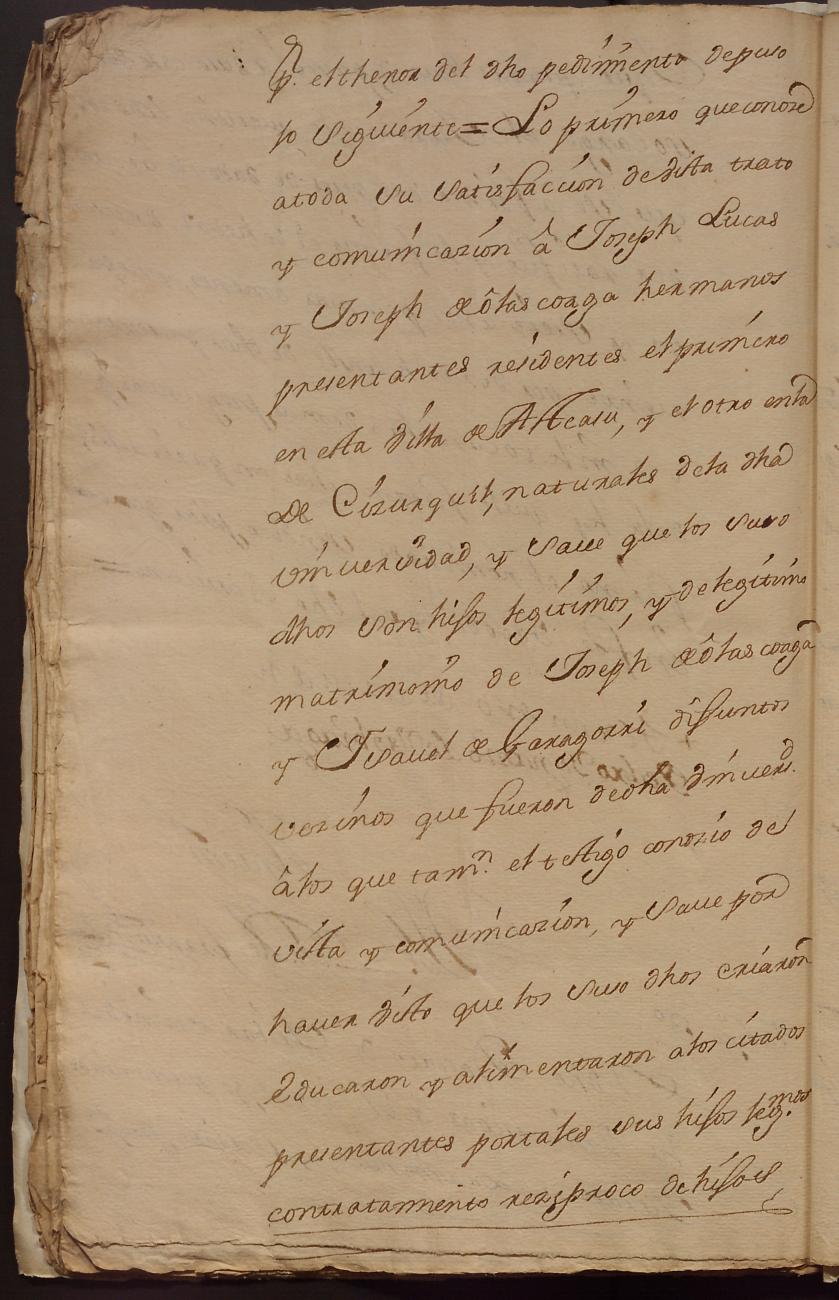 p. el thenor del dho pedimiento depuso
lo Siguiente = Lo primero que conoce
atoda su satisfaccion de vista trato
y comunicazion â Joseph Lucas
y Joseph de ôlascoaga hermanos
presentantes residentes el primero
en esta Villa de Alcasu, y el otro enla
De Cizurquil, naturales dela dha
Vniuersidad, y Saue que los suso
dhos son hijos legitimos, y de legitimo
matrimonio de Joseph de ôlascoaga
y Ysauel de Garagorri difuntos
vezinos que fueron de dha Vniuersd.
âlos que tamn. el testigo conozio de
vista y comunicazion, y Saue por
hauer visto que los suso dhos criaron
Educaron y alimentaron alos citados
presentantes portales sus hijos legmos.
contratamiento reziproco de hijos